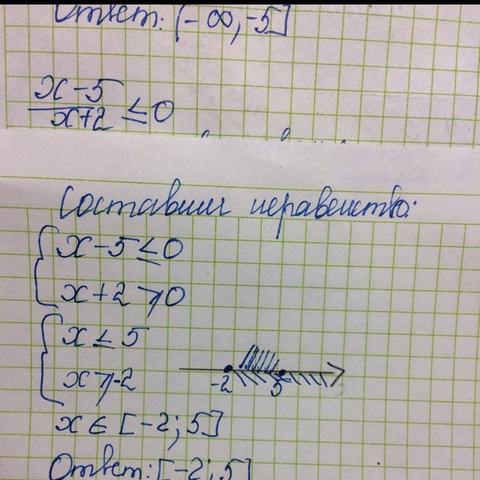 Ответ: (-∞, -5]
x-5
x+2 ≤0
Составим неравенство:
x-5≤0
x+2≥0
x≤5
x≥-2
-2 5
x∈[-2;5]
Ответ: [-2;5]